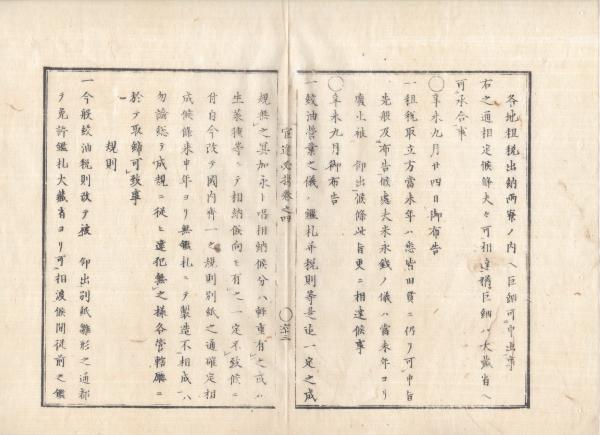 各地租税出納両寮ノ内ヘ巨細可申出事
右之通相定候條夫々可相達猶巨細ハ大蔵省ヘ
可承合事
○辛未九月廿四日御布告
一租税取立方當未年ハ悉皆田貫ニ仍ヲ可申旨
先般及布告候處大米永銭ノ儀ハ當未年ヨリ
廃止被 仰出候條此旨更ニ相達候事
○辛未九月御布告
一絞油営業之儀ハ鑑札并税則等是迄一定之成
巻之四
○六十二
規無之其加永ト唱相納候分ハ軽重有之或ハ
生菜種等ニテ相納候向モ有之一定不致候ニ
付自今改テ國内斉一之規則別紙之通確定相
成候條来申年ヨリ無鑑札ニテ製造不相成ハ
勿論総テ成規ニ従ヒ違犯無之様各管轄廳ニ
於テ取締可致事
規則
一今般絞油税則改テ被 仰出別紙雛形之通都
テ免許鑑札大蔵省ヨリ可相渡候間従前之鑑